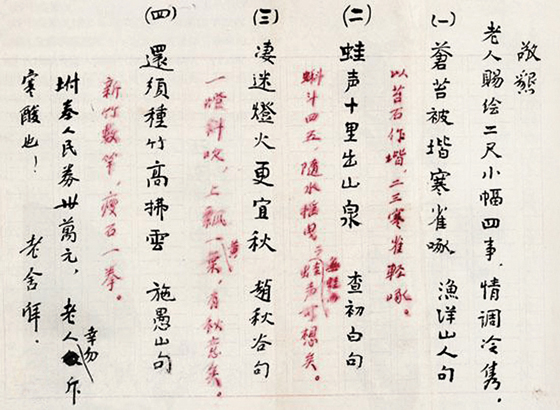 敬懇
老人賜绘二尺小幅四事，情调冷雋。
(一) 蒼苔被堦寒雀啄 漁洋山人句
以苔石作堦，二三寒雀軽啄。
(二) 蛙声十里出山泉 查初白句
蝌斗四五，隨水摇曳；無蛙而蛙声可想矣。
(三) 凄迷燈火更宜秋 趙秋谷句
一燈斜吹，上飄一黄葉，有秋意矣。
(四) 還須種竹高拂雲 施愚山句
新竹數竿，瘦石一拳。
坿奉人民券卅萬元，老人幸勿斥
寒酸也！ 老舍拜.